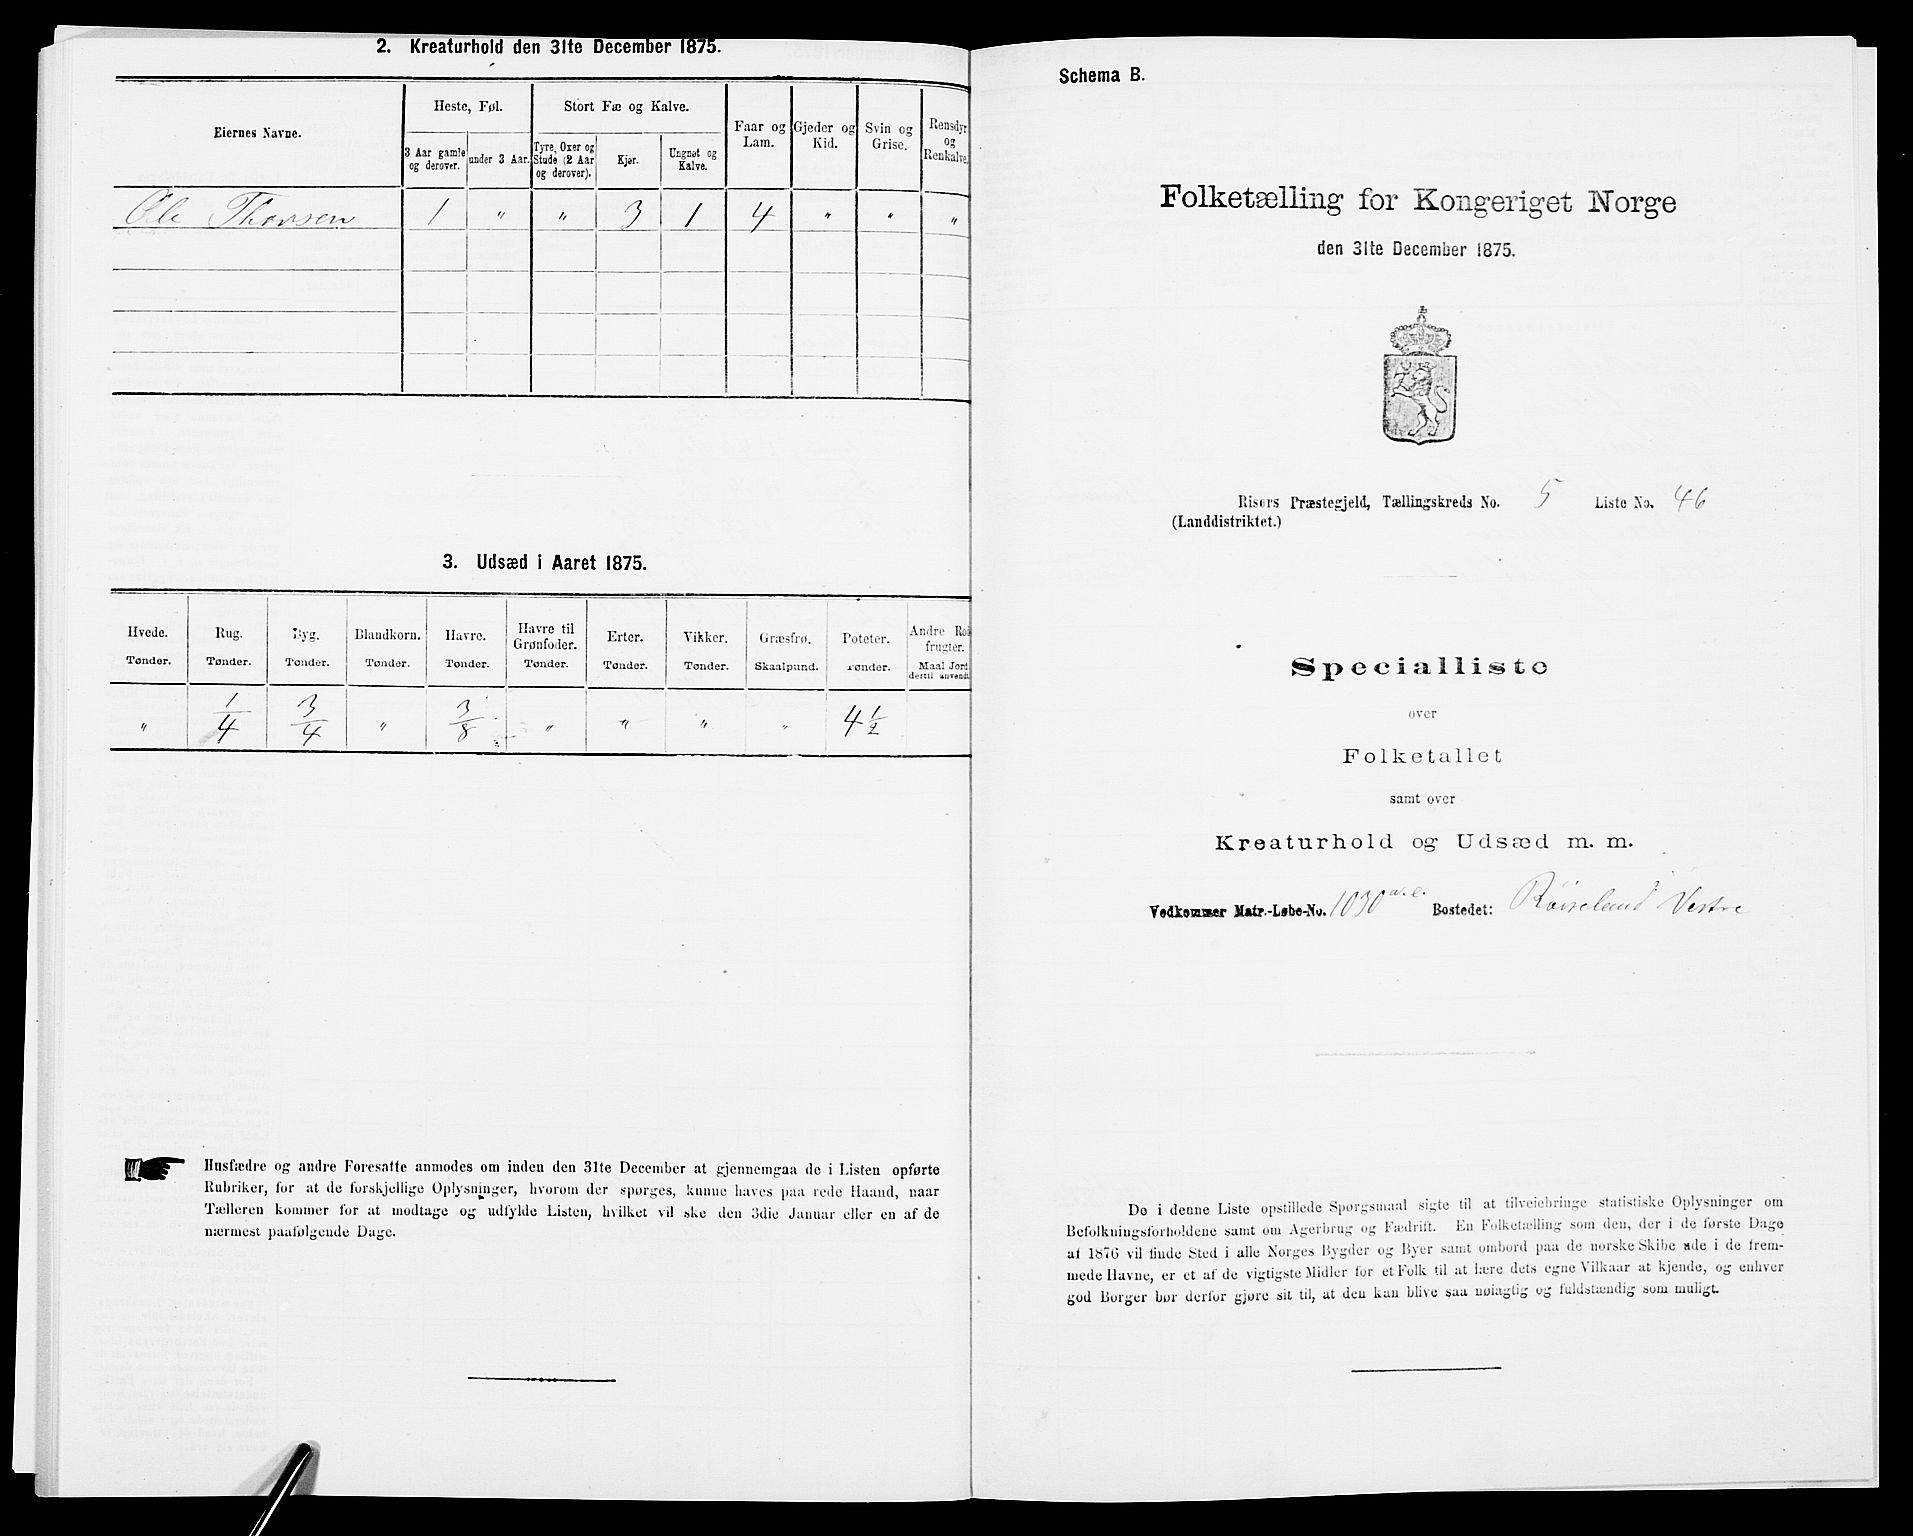 2. Kreaturhold den 31te December 1875.
Eiernes Navne.
Heste, Føl.
Stort Fæ og Kalve.
Faar og
Lam.
Gjeder og
Kid.
Svin og
Grise.
Rensdyr
og
Renkalve.
3 Aar gamle
og derover.
under 3 Aar.
Tyre, Oxer og
Stude (2 Aar
og derover).
Kjør.
Ungnøt og
Kalve.
Ole Thorsen 1 " " 3 1 4 " " "
3. Udsæd i Aaret 1875.
Hvede.
Tønder.
Rug.
Tønder.
Byg.
Tønder.
Blandkorn.
Tønder.
Havre.
Tønder.
Havre til
Grønfoder.
Tønder.
Erter.
Tønder.
Vikker.
Tønder.
Græsfrø.
Skaalpund.
Poteter.
Tønder.
Andre Ro
frugter.
Maal Jord
dertil anvendt
" 1/4 3/4 " 3/8 " " " " 4 1/2
Husfædre og andre Foresatte anmodes om inden den 31te December at gjennemgaa de i Listen opførte
Rubriker, for at de forskjellige Oplysninger, hvorom der spørges, kunne haves paa rede Haand, naar
Tælleren kommer for at modtage og udfylde Listen, hvilket vil ske den 3die Januar eller en af de
nærmest paafølgende Dage.
Schema B.
Folketælling for Kongeriget Norge
den 31te December 1875.
Risørs Præstegjeld, Tællingskreds No. 5 Liste No. 46
(Landdistriktet.)
Specialliste
over
Folketallet
samt over
Kreaturhold og Udsæd m. m.
Vedkommer Matr.-Løbe-No. 1030 a.c. Bostedet: Røiseland Vestre
De i denne Liste opstillede Spørgsmaal sigte til at tilveiebringe statistiske Oplysninger om
Befolkningsforholdene samt om Agerbrug og Fædrift. En Folketælling som den, der i de første Dage
af 1876 vil finde Sted i alle Norges Bygder og Byer samt ombord paa de norske Skibe ude i de frem-
mede Havne, er et af de vigtigste Midler for et Folk til at lære dets egne Vilkaar at kjende, og enhver
god Borger bør derfor gjøre sit til, at den kan blive saa nøiagtig og fuldstændig som muligt.